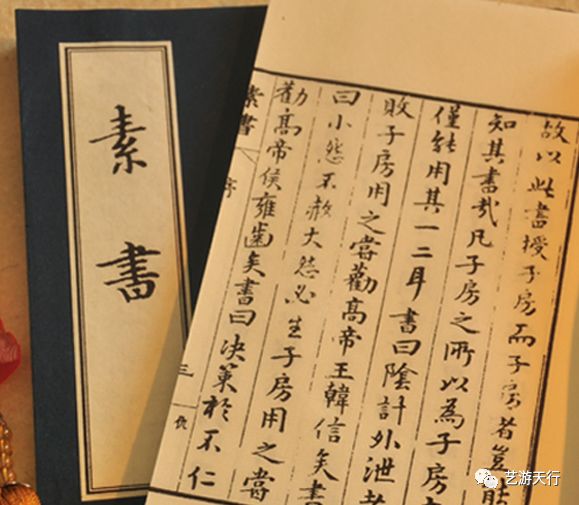 素書
故以此書授子房而子房者豈能
知其書哉凡子房之所以為子房
僅能用其一二耳書曰陰計外泄者
敗子房用之嘗勸高帝王韓信矣書
曰小怨不赦大怨必生子房用之嘗
勸高帝侯雍齒矣書曰決策於不仁
素書 序 三
艺游天行